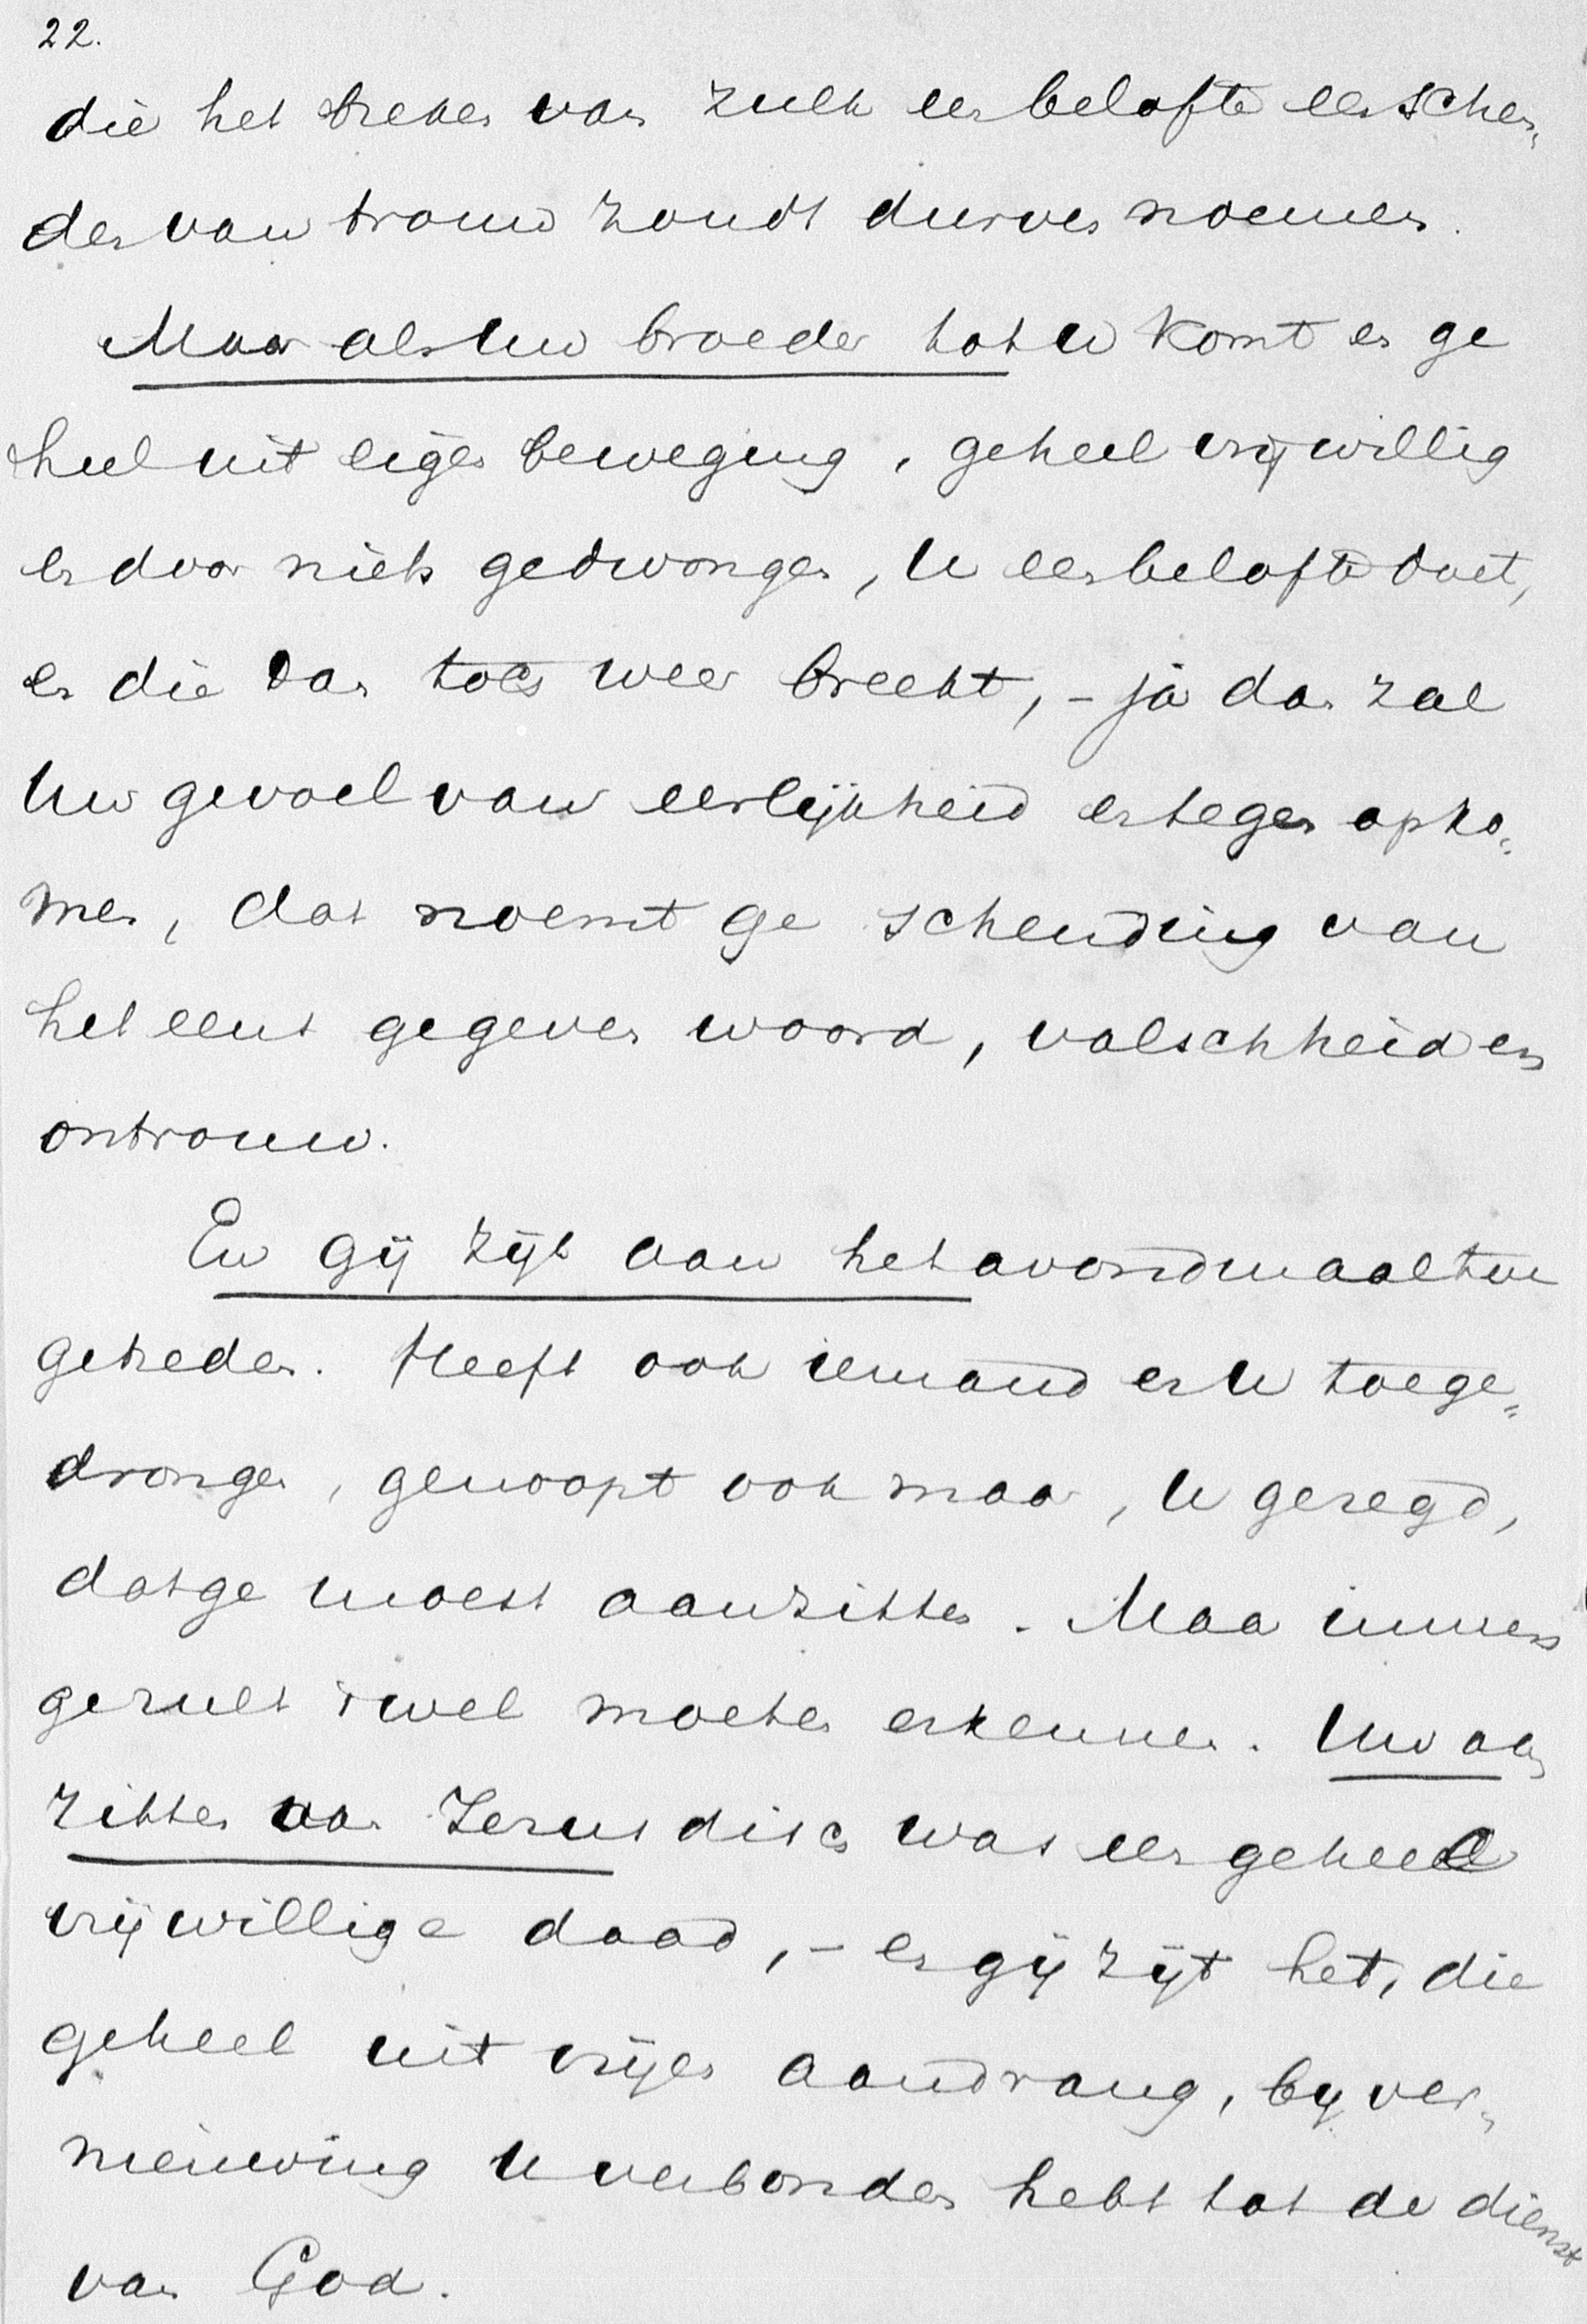 22.
die het breken van zulk een belofte een schen„
den van trouw zoudt durven noemen.
Maar als Uw broeder tot U komt en ge
heel uit eigen beweging, geheel vrijwillig
en door niets gedwongen, U een belofte doet,
en die dan toch weer breekt, – ja dan zal
Uw gevoel van eerlijkheid ertegen opko„
men, dat noemt ge schending van
het eens gegeven woord, valschheid en
ontrouw.
En gij zijt aan het avondmaal toe
getreden. Heeft ook iemand er U toege„
drongen, genoopt ook maar, U gezegd,
dat ge moest aanzitten. Maar immers
ge zult 't wel moeten erkennen. Uw aan
zitten aan Jezus disch was een geheel
vrijwillige daad, – en gij zijt het, die
geheel uit vrijen aandrang, bij ver„
nieuwing U verbonden hebt tot de dienst
van God.